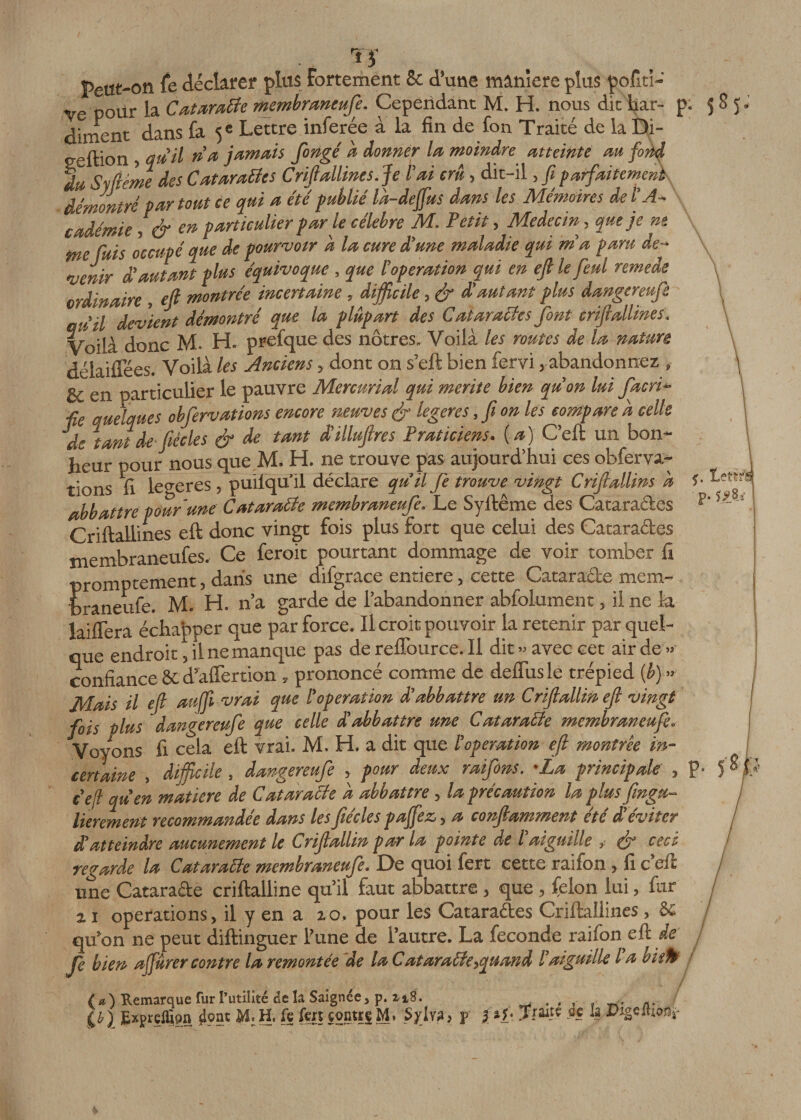 Peut-on ſe déclarer plus fortement & d'une maniere plus poſiti-
ve pour la Cataracte membraneuſe. Cependant M. H. nous dit har- p. 585.
diment dans ſa 5e Lettre inſerée à la fin de ſon Traité de la Di-
geſtion, qu'il n'a jamais ſongé à donner la moindre atteinte au fond
du Syſtéme des Cataractes Criſtallines. Je l'ai crû, dit-il, ſi parfaitement
démontré par tout ce qui a été publié là-deſſus dans les Mémoires de l'A-
cadémie, & en particulier par le célebre M. Petit, Medecin, que je ne
me ſuis occupé que de pourvoir à la cure d'une maladie qui m'a paru de-
venir d'autant plus équivoque, que l'operation qui en eſt le ſeul remede
ordinaire, eſt montrée incertaine, difficile, & d'autant plus dangereuſe
qu'il devient démontré que la plûpart des Cataractes ſont criſtallines.
Voilà donc M. H. preſque des nôtres. Voilà les routes de la nature
délaiſſées. Voilà les Anciens, dont on s'eſt bien ſervi, abandonnez,
& en particulier le pauvre Mercurial qui merite bien qu'on lui ſacri-
fie quelques obſervations encore neuves & legeres, ſi on les compare à celle
de tant de ſiécles & de tant d'illuſtres Praticiens. (a) C'eſt un bon-
heur pour nous que M. H. ne trouve pas aujourd'hui ces obſerva-
tions ſi legeres, puiſqu'il déclare qu'il ſe trouve vingt Criſtallins à 5. Lettre
abbattre pour une Cataracte membraneuſe. Le Syſtême des Cataractes p. 585.
Criſtallines eſt donc vingt fois plus fort que celui des Cataractes
membraneuſes. Ce ſeroit pourtant dommage de voir tomber ſi
promptement, dans une diſgrace entiere, cette Cataracte mem-
braneuſe. M. H. n'a garde de l'abandonner abſolument, il ne la
laiſſera échapper que par force. Il croit pouvoir la retenir par quel-
que endroit, il ne manque pas de reſſource. Il dit » avec cet air de »
confiance & d'aſſertion, prononcé comme de deſſus le trépied (b) »
Mais il eſt auſſi vrai que l'operation d'abbattre un Criſtallin eſt vingt
fois plus dangereuſe que celle d'abbattre une Cataracte membraneuſe.
Voyons ſi cela eſt vrai. M. H. a dit que l'operation eſt montrée in-
certaine, difficile, dangereuſe, pour deux raiſons. La principale, p. 585.
c'eſt qu'en matiere de Cataracte à abbattre, la précaution la plus ſingu-
lierement recommandée dans les ſiécles paſſez, a conſtamment été d'éviter
d'atteindre aucunement le Criſtallin par la pointe de l'aiguille, & ceci
regarde la Cataracte membraneuſe. De quoi ſert cette raiſon, ſi c'eſt
une Cataracte criſtalline qu'il faut abbattre, que, ſelon lui, ſur
21 operations, il y en a 20. pour les Cataractes Criſtallines, &
qu'on ne peut diſtinguer l'une de l'autre. La ſeconde raiſon eſt de
ſe bien aſſûrer contre la remontée de la Cataracte, quand l'aiguille l'a
(a) Remarque ſur l'utilité de la Saignée, p. 218.
(b) Expreſſion dont M. H. ſe ſert contre M. Sylva, p 325. Traité de la Digeſtion.